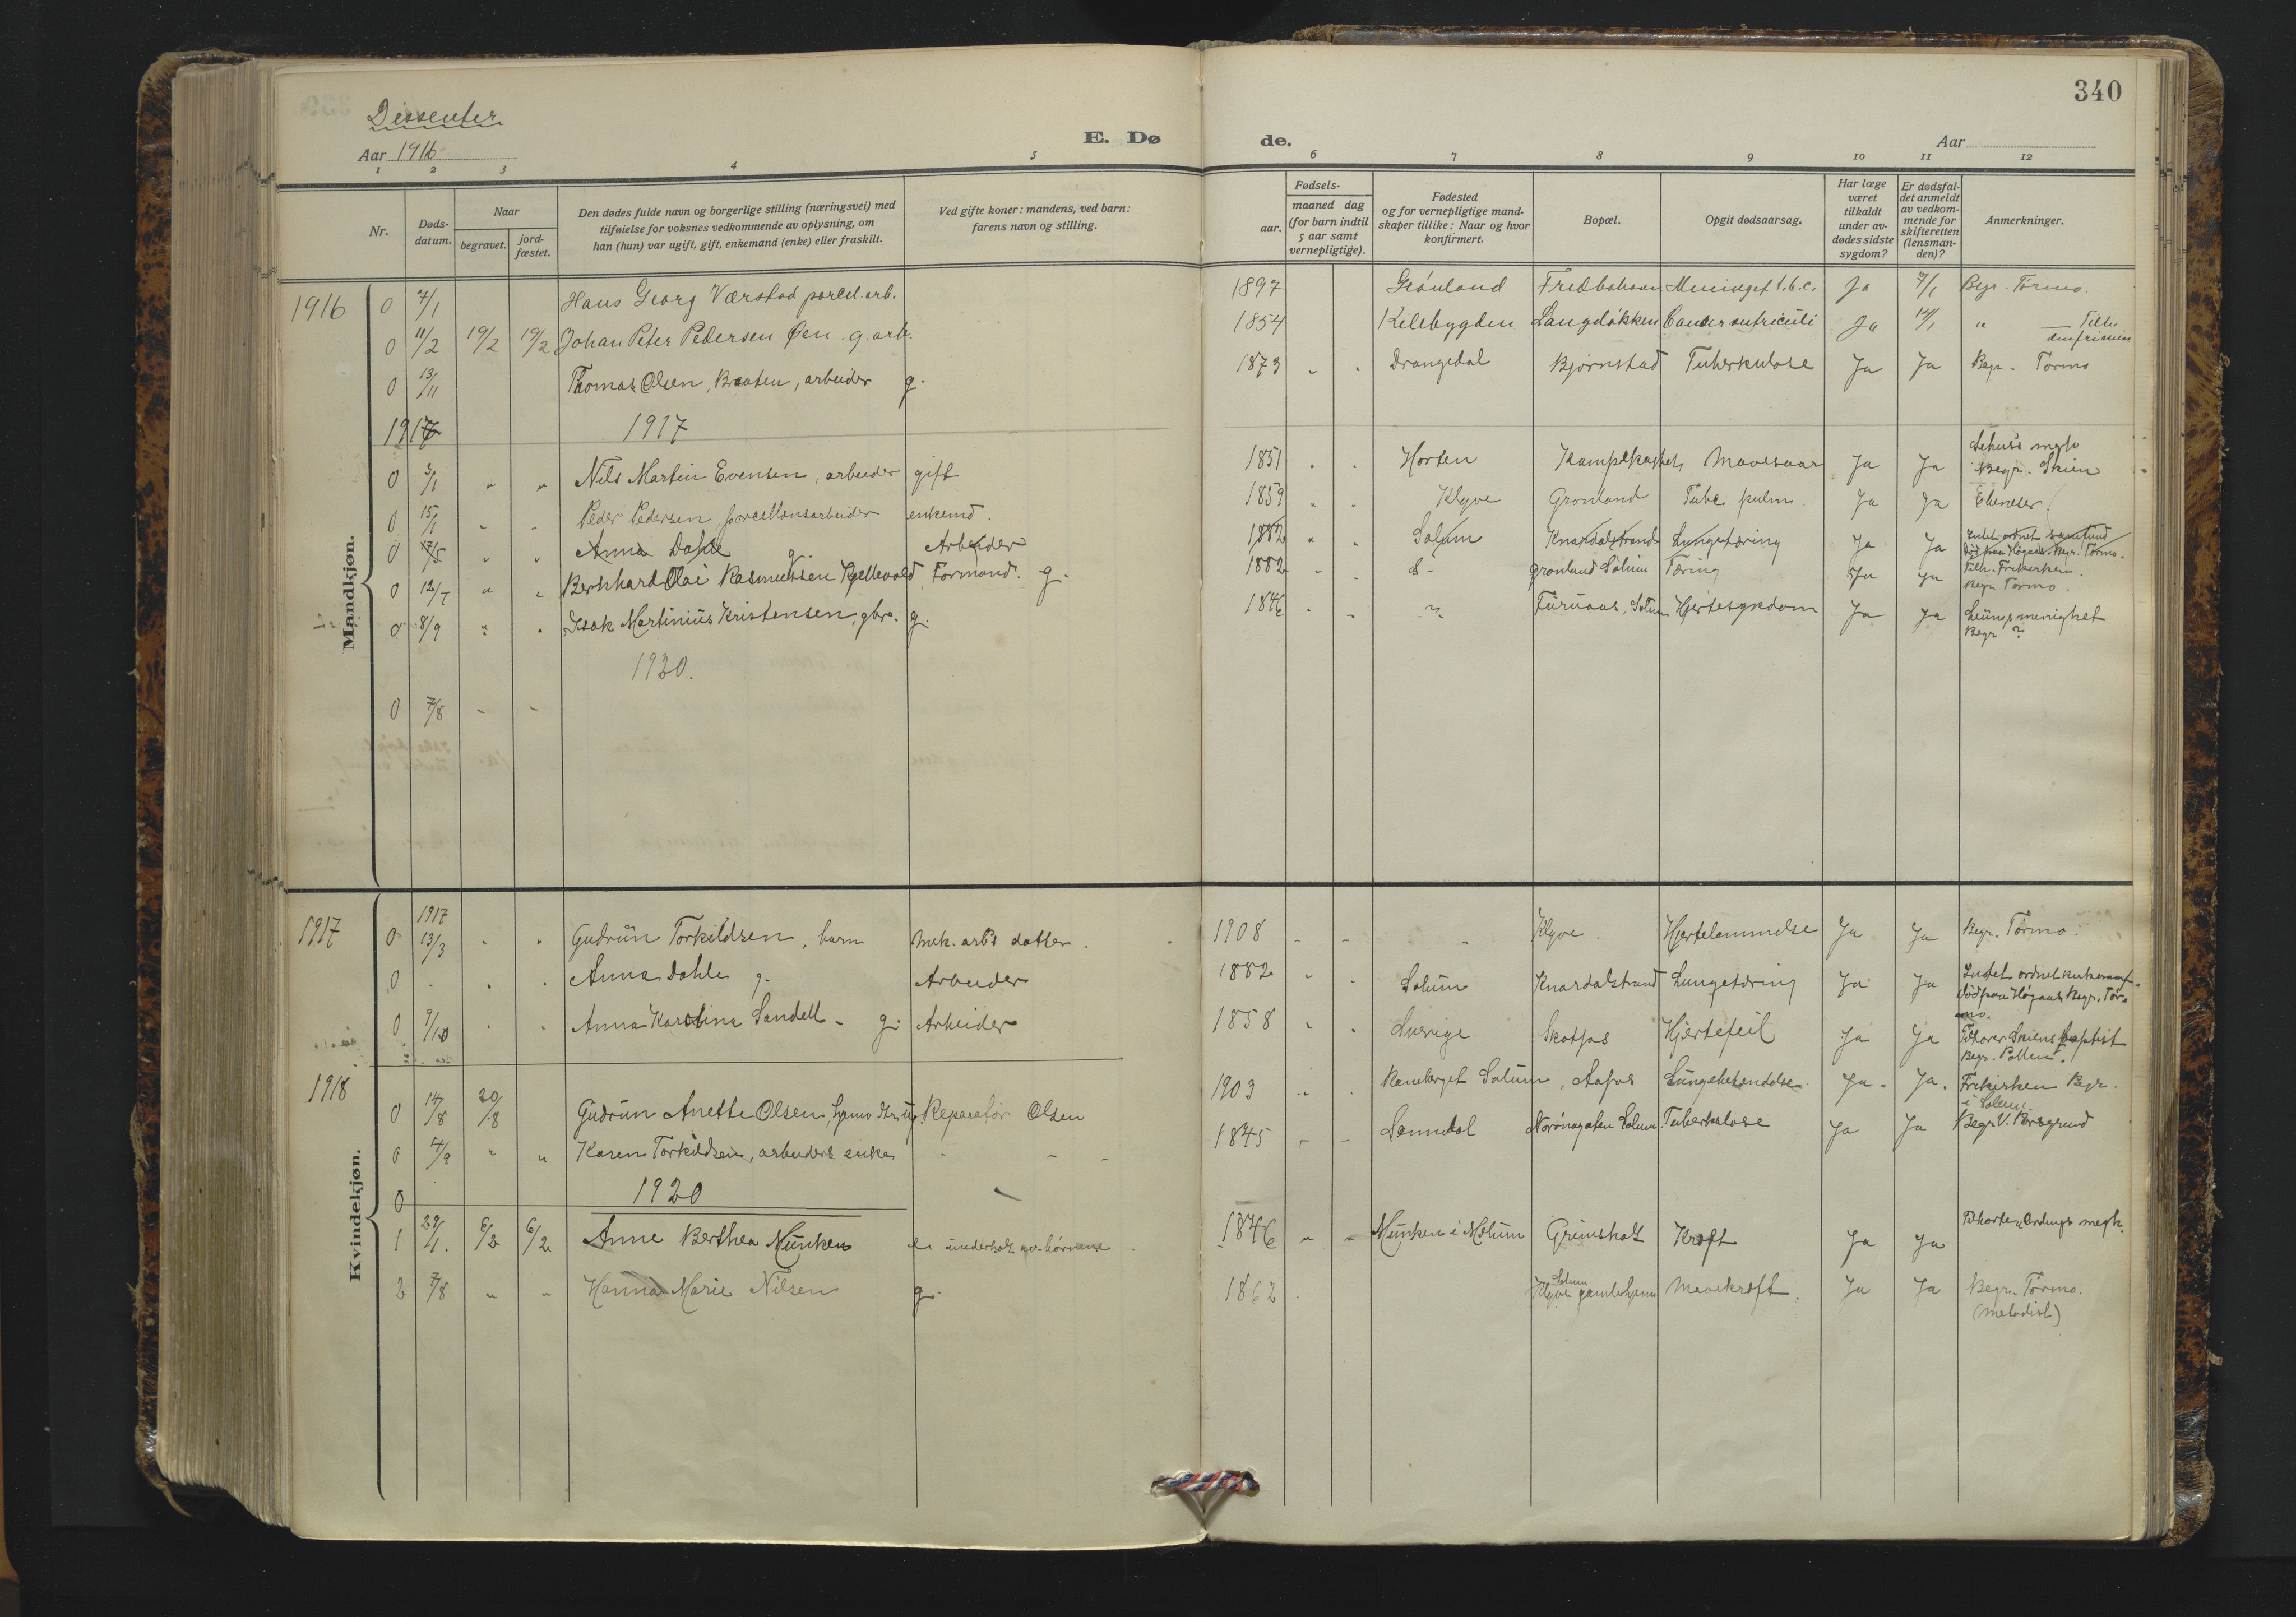 340
Dissenter
E. Dø de.
Aar 1916 Aar
1 2 3 4 5 6 7 8 9 10 11 12
Nr.
Døds-
datum.
Naar
begravet.
jord-
fæstet.
Den dødes fulde navn og borgerlige stilling (næringsvei) med
tilføielse for voksnes vedkommende av oplysning, om
han (hun) var ugift, gift, enkemand (enke) eller fraskilt.
Ved gifte koner: mandens, ved barn:
farens navn og stilling.
aar.
Fødsels-
maaned dag
(for barn indtil
5 aar samt
vernepligtige).
Fødested
og for vernepligtige mand-
skaper tillike: Naar og hvor
konfirmert.
Bopæl.
Opgit dødsaarsag.
Har læge
været
tilkaldt
under av-
dødes sidste
sygdom?
Er dødsfal-
det anmeldt
av vedkom-
mende for
skifteretten
(lensman-
den)?
Anmerkninger.
Mandkjøn.
1916 0 7/1 Hans Georg Værstad porcel. arb. 1897 Grønland Ja 7/1 Begr. Tormo.
0 11/2 19/2 19/2 Johan Peter Pedersen Øen. g. arb. 1854 Kilebygden Langeløkken Cancer Ja 14/1 " Tilh.
0 13/11 Thomas Olsen, Braaten, arbeider g. 1873 " " Drangedal Bjørnstad Tuberkulose Ja Ja Begr. Tormo
1917 1917
0 3/1 " " Nils Martin Evensen, arbeider gift 1851 " " Horten Mavesaar Ja Ja Begr. Skien
0 15/1 " " Peder Pedersen porcellænsarbeider enkemd. 1859 " " Klyve Grønland Tube pulm. Ja Ja Ebeneser
0 17/5 " " Anna Dahle g. Arbeider 1882 " " Solum Knardalstrand Lungetæring Ja Ja Intet ordnet samfund
død paa Høgaas. Begr. Tormo.
0 12/7 " " Bernhard Olai Rasmussen Kjellevold Formand. g. 1882 " " S- Grønland Solum Tæring Ja Ja Tilh. Frikirken.
Begr. Tormo.
0 8/9 " " Isak Martinius Kristensen, gbr. g. 1846 " " -"- Furuaas, Solum Hjertesygdom Ja Ja menighet
Begr ?
1920.
0 7/8 - -
Kvindekjøn.
1917 1917
0 13/3 " " Gudrun Torkildsen, barn Mek. arb's datter. 1908 - - - Klyve. Hjertelammelse Ja Ja Begr. Tormo.
0 " " " Anna Dahle g. Arbeider 1882 " " Solum Knardalstrand Lungetæring Ja Ja Intet ordnet kirkesamf.
død paa Høgaas Begr. Tor-
mo.
0 9/10 " " Anna Karolina Sandell - g. Arbeider 1858 " " Sverige Skotfos Hjertefeil Ja Ja Tilhører Skiens Baptist
Begr. Pollen.
1918 0 14/8 20/8 Gudrun Anette Olsen, Reparatør Olsen 1903 " " Solum, Aafos Lungebetændelse Ja. Ja. Frikirken Begr.
i Solum.
0 4/9 " " Karen Torkildsen, arbeiders enke - - - 1845 - - Sannidal Solum Tuberkulose Ja Ja Begr. V. Porsgrund
0 1920
1 29/1. 6/2 6/2 Anne Berthea Munken e. underholt av børnene 1846 " " Munken i Melum Grimsholt Kræft Ja Ja Tilhørte megh.
2 7/8 " " Hanna Marie Nilsen g. 1862 Solum
Klyve gamlehjem Mavekræft. Ja Ja Begr. Tormo.
(metodist)